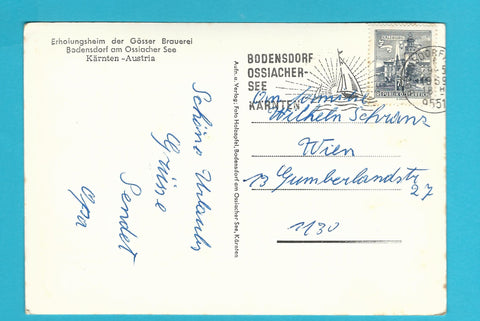 Erholungsheim der Gösser Brauerei
Bodensdorf am Ossiacher See
Kärnten - Austria
Schöne Urlaubs
Grüsse
Sendet
Opa
Aufn. u. Verlag: Foto Holzapfel, Bodensdorf am Ossiacher See, Kärnten
BODENSDORF
OSSIACHER-
SEE
KÄRNTEN
REPUBLIK ÖSTERREICH
9551
Wilhelm
Wien
13 Cumberlandstr
27
1130